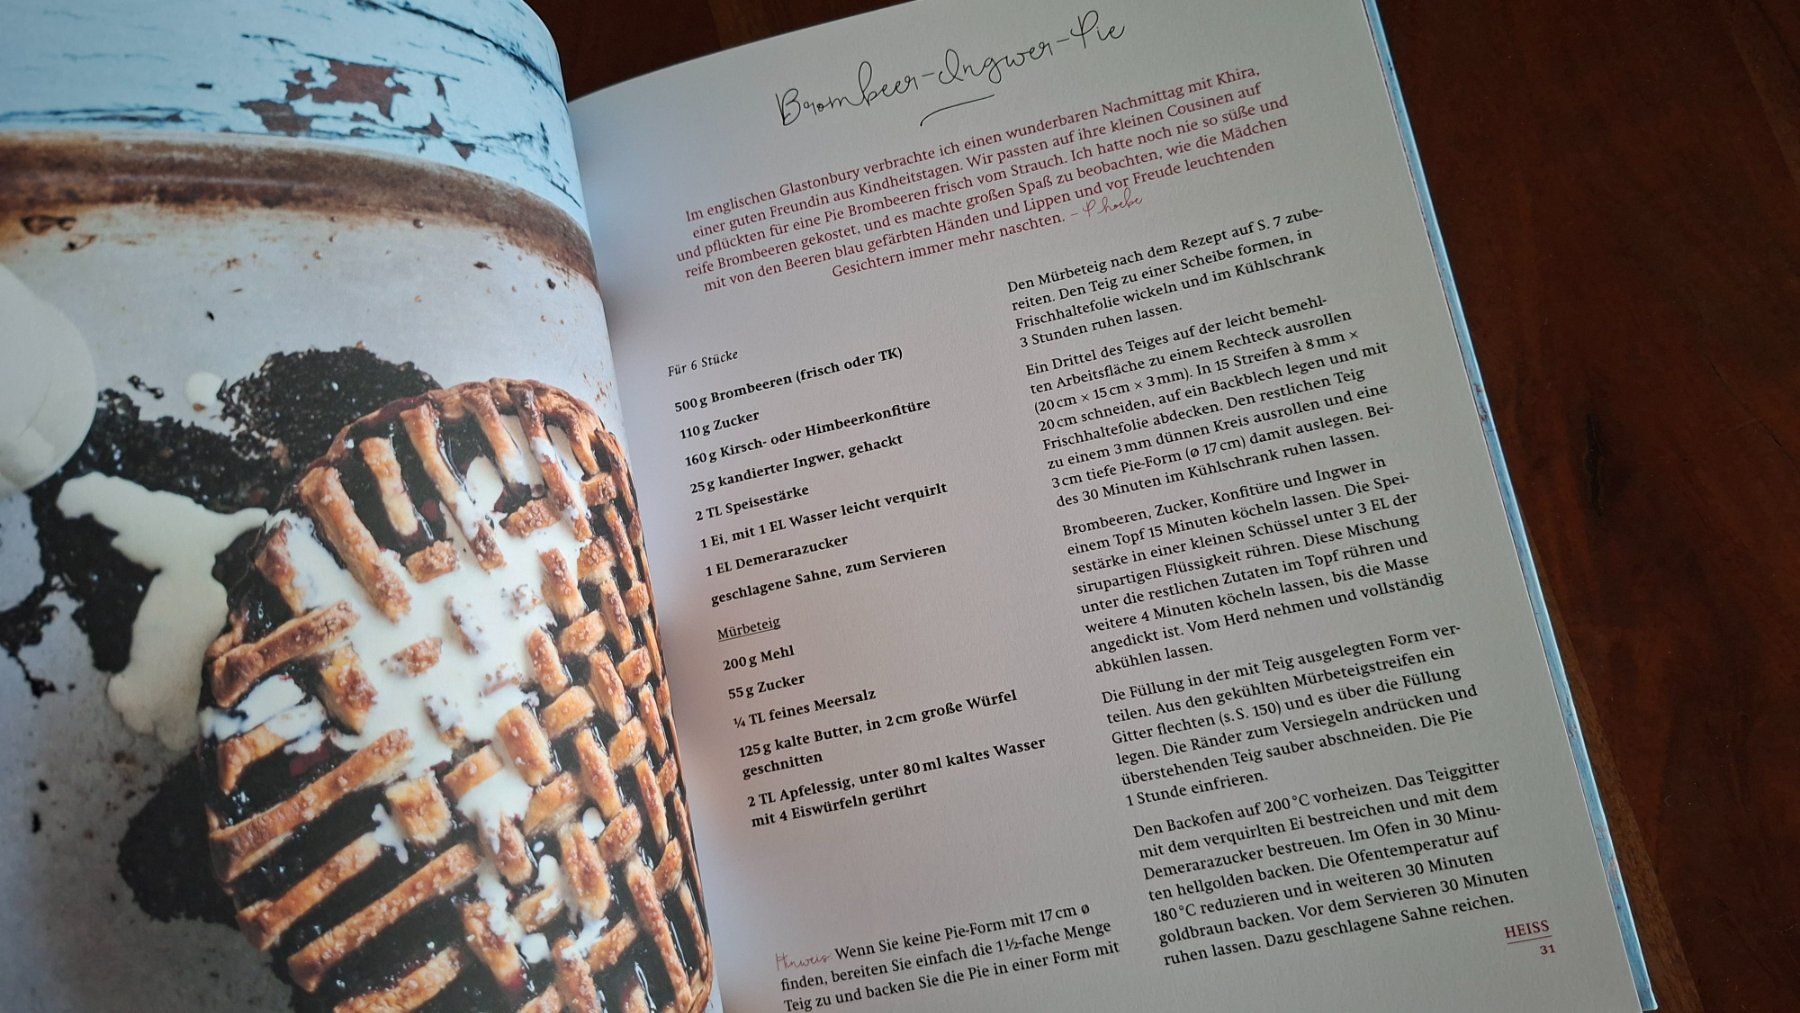 Brombeer-Ingwer-Pie
Im englischen Glastonbury verbrachte ich einen wunderbaren Nachmittag mit Khira,
einer guten Freundin aus Kindheitstagen. Wir passten auf ihre kleinen Cousinen auf
und pflückten für eine Pie Brombeeren frisch vom Strauch. Ich hatte noch nie so süße und
reife Brombeeren gekostet, und es machte großen Spaß zu beobachten, wie die Mädchen
mit von den Beeren blau gefärbten Händen und Lippen und vor Freude leuchtenden
Gesichtern immer mehr naschten. – Phoebe
Für 6 Stücke
500 g Brombeeren (frisch oder TK)
110 g Zucker
160 g Kirsch- oder Himbeerkonfitüre
25 g kandierter Ingwer, gehackt
2 TL Speisestärke
1 Ei, mit 1 EL Wasser leicht verquirlt
1 EL Demerarazucker
geschlagene Sahne, zum Servieren
Mürbeteig
200 g Mehl
55 g Zucker
¼ TL feines Meersalz
125 g kalte Butter, in 2 cm große Würfel
geschnitten
2 TL Apfelessig, unter 80 ml kaltes Wasser
mit 4 Eiswürfeln gerührt
Hinweis Wenn Sie keine Pie-Form mit 17 cm ø
finden, bereiten Sie einfach die 1½-fache Menge
Teig zu und backen Sie die Pie in einer Form mit
Den Mürbeteig nach dem Rezept auf S. 7 zube-
reiten. Den Teig zu einer Scheibe formen, in
Frischhaltefolie wickeln und im Kühlschrank
3 Stunden ruhen lassen.
Ein Drittel des Teiges auf der leicht bemehl-
ten Arbeitsfläche zu einem Rechteck ausrollen
(20 cm × 15 cm × 3 mm). In 15 Streifen à 8 mm ×
20 cm schneiden, auf ein Backblech legen und mit
Frischhaltefolie abdecken. Den restlichen Teig
zu einem 3 mm dünnen Kreis ausrollen und eine
3 cm tiefe Pie-Form (ø 17 cm) damit auslegen. Bei-
des 30 Minuten im Kühlschrank ruhen lassen.
Brombeeren, Zucker, Konfitüre und Ingwer in
einem Topf 15 Minuten köcheln lassen. Die Spei-
sestärke in einer kleinen Schüssel unter 3 EL der
sirupartigen Flüssigkeit rühren. Diese Mischung
unter die restlichen Zutaten im Topf rühren und
weitere 4 Minuten köcheln lassen, bis die Masse
angedickt ist. Vom Herd nehmen und vollständig
abkühlen lassen.
Die Füllung in der mit Teig ausgelegten Form ver-
teilen. Aus den gekühlten Mürbeteigstreifen ein
Gitter flechten (s. S. 150) und es über die Füllung
legen. Die Ränder zum Versiegeln andrücken und
überstehenden Teig sauber abschneiden. Die Pie
1 Stunde einfrieren.
Den Backofen auf 200 °C vorheizen. Das Teiggitter
mit dem verquirlten Ei bestreichen und mit dem
Demerarazucker bestreuen. Im Ofen in 30 Minu-
ten hellgolden backen. Die Ofentemperatur auf
180 °C reduzieren und in weiteren 30 Minuten
goldbraun backen. Vor dem Servieren 30 Minuten
ruhen lassen. Dazu geschlagene Sahne reichen.
HEISS
31